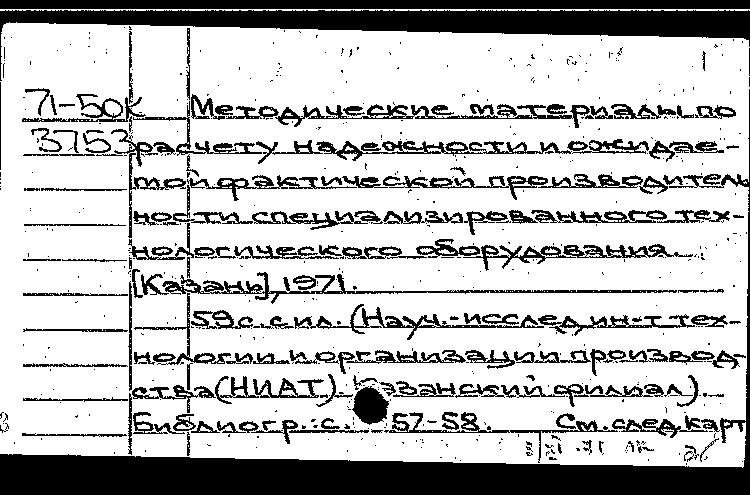 71-50к Методические материалы по
3753 расчету надежности и ожидае-
мой фактической производитель
ности специализированного тех-
нологического оборудования.
[Казань], 1971.
59 с. с ил. (Науч.-исслед. ин-т тех-
нологии и организации производ-
ства (НИАТ). Казанский филиал).
Библиогр.: с. 57-58. См. след. карт